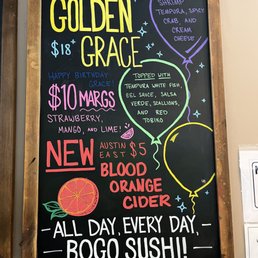 GOLDEN
$18 GRACE
SHRIMP
TEMPURA, SPICY
CRAB AND
CREAM
CHEESE
HAPPY BIRTHDAY
GRACE
$10 MARGS
STRAWBERRY,
MANGO, AND LIME!
TOPPED WITH
TEMPURA WHITE FISH
EEL SAUCE, SALSA
VERDE, SCALLIONS,
AND RED
TOBIKO
NEW AUSTIN EAST $5
BLOOD
ORANGE
CIDER
-ALL DAY, EVERY DAY,-
-BOGO SUSHI!-